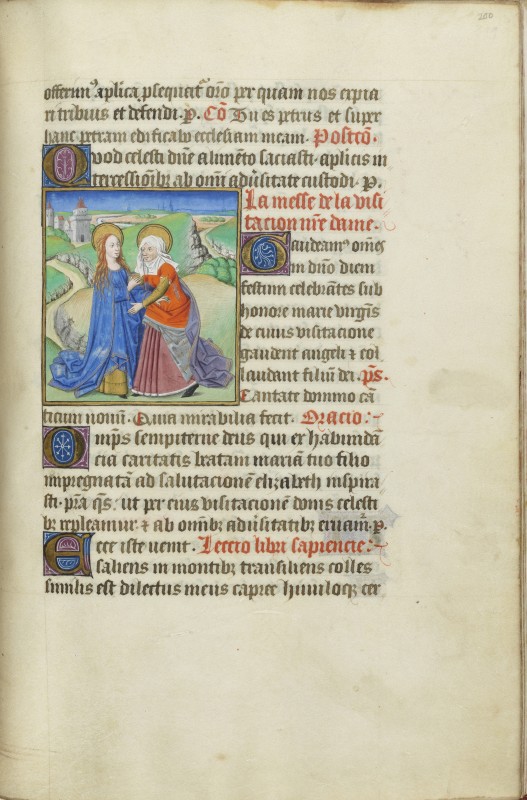 offerim⁹ aplica ꝓsequat᷑ oro per quam nos expia
ri tribuis et defendi. P. Cō Tu es petrus et super
hanc petram edificabo ecclesiam meam. Postcō.
Quod celesti dn̄e alimēto saciasti. aplicis in
tercessiōibꝫ ab omī aduˀsitate custodi. P.
La messe de la visi
tacion nr̄e dame.
Gaudeam⁹ om̄es
in dn̄o diem
festum celebrātes sub
honore marie virgīs
de cuius visitacione
gaudent angeli ⁊ col
laudant filiū dei. p̄s.
Cantate domino cā
ticum nouū. Quia mirabilia fecit. Oracio:~
Omp̄s sempiterne deus qui ex habundā
cia caritatis beatam mariā tuo filio
impregnatā ad salutacionē elizabeth inspira
sti. pr̄a qs̄. ut per eius visitacionē donis celesti
bꝫ repleamur ⁊ ab om̄ibꝫ aduˀsitatibꝫ eruam̄. p.
Ecce iste uenit. Leccio libri sapiencie:~
saliens in montibꝫ transiliens colles
similis est dilectus meus capree hinuloqꝫ cer